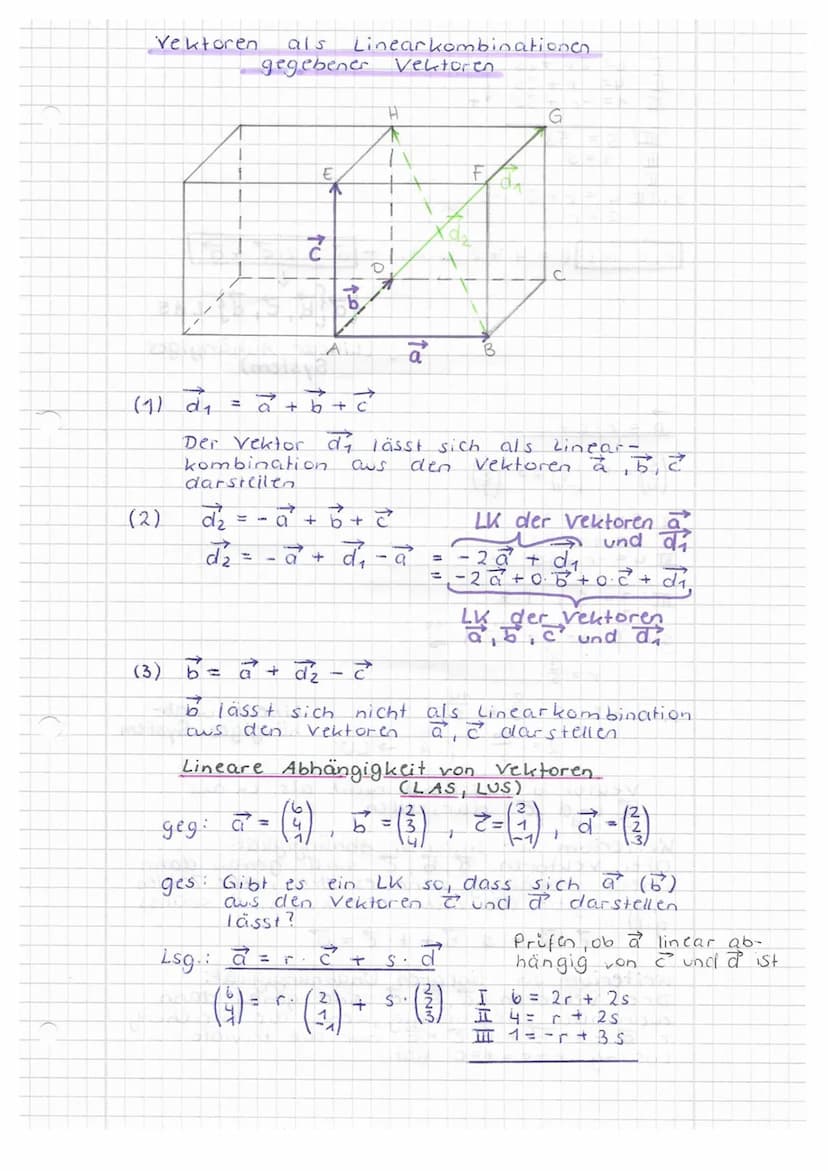 Vektoren als Linearkombinationen
gegebener Vektoren
H
G
E
F
d₁
d₂
c
D
C
b
A
a
B
(1) d₁ = a + b + c
Der Vektor d₁ lässt sich als Linear-
kombination aus den Vektoren a, b, c
darstellen
(2) d₂ = - a + b + c
LK der Vektoren a
und d₁
d₂ = - a + d₁ - a = - 2 a + d₁
= - 2 a + 0 · b + 0 · c + d₁
LK der Vektoren
a, b, c und d₁
(3) b = a + d₂ - c
b lässt sich nicht als Linearkombination
aus den Vektoren a, c darstellen
Lineare Abhängigkeit von Vektoren
(LAS, LUS)
geg: a = (6 4 1), b = (2 3 4), c = (2 1 -1), d = (2 2 3)
ges: Gibt es ein LK so, dass sich a (b)
aus den Vektoren c und d darstellen
lässt?
Lsg.: a = r · c + s · d
Prüfen, ob a linear ab-
hängig von c und d ist
(6 4 1) = r · (2 1 -1) + s · (2 2 3)
I 6 = 2r + 2s
II 4 = r + 2s
III 1 = -r + 3s